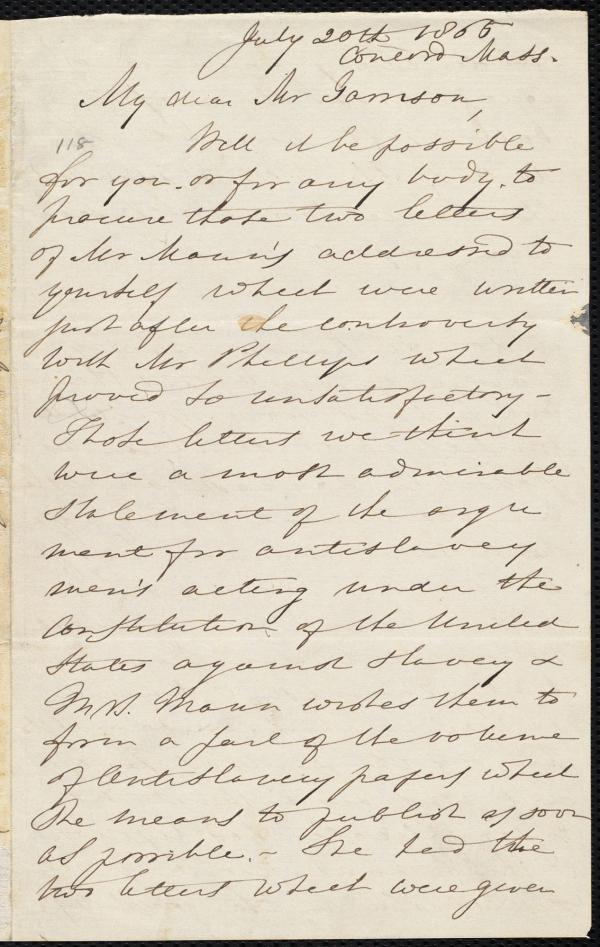 July 20th 1865
Concord Mass.
My dear Mr Garrison,
118
Will it be possible
for you, or for any body, to
procure those two letters
of Mr Mann's addressed to
yourself which were written
just after the controversy
with Mr Phillips which
proved so unsatisfactory –
Those letters we think
were a most admirable
statement of the argu
ment for antislavery
men's acting under the
Constitution of the United
States against slavery &
Mrs. Mann wishes them to
form a part of the volume
of Antislavery papers which
she means to publish as soon
as possible. – She had the
two letters which were given